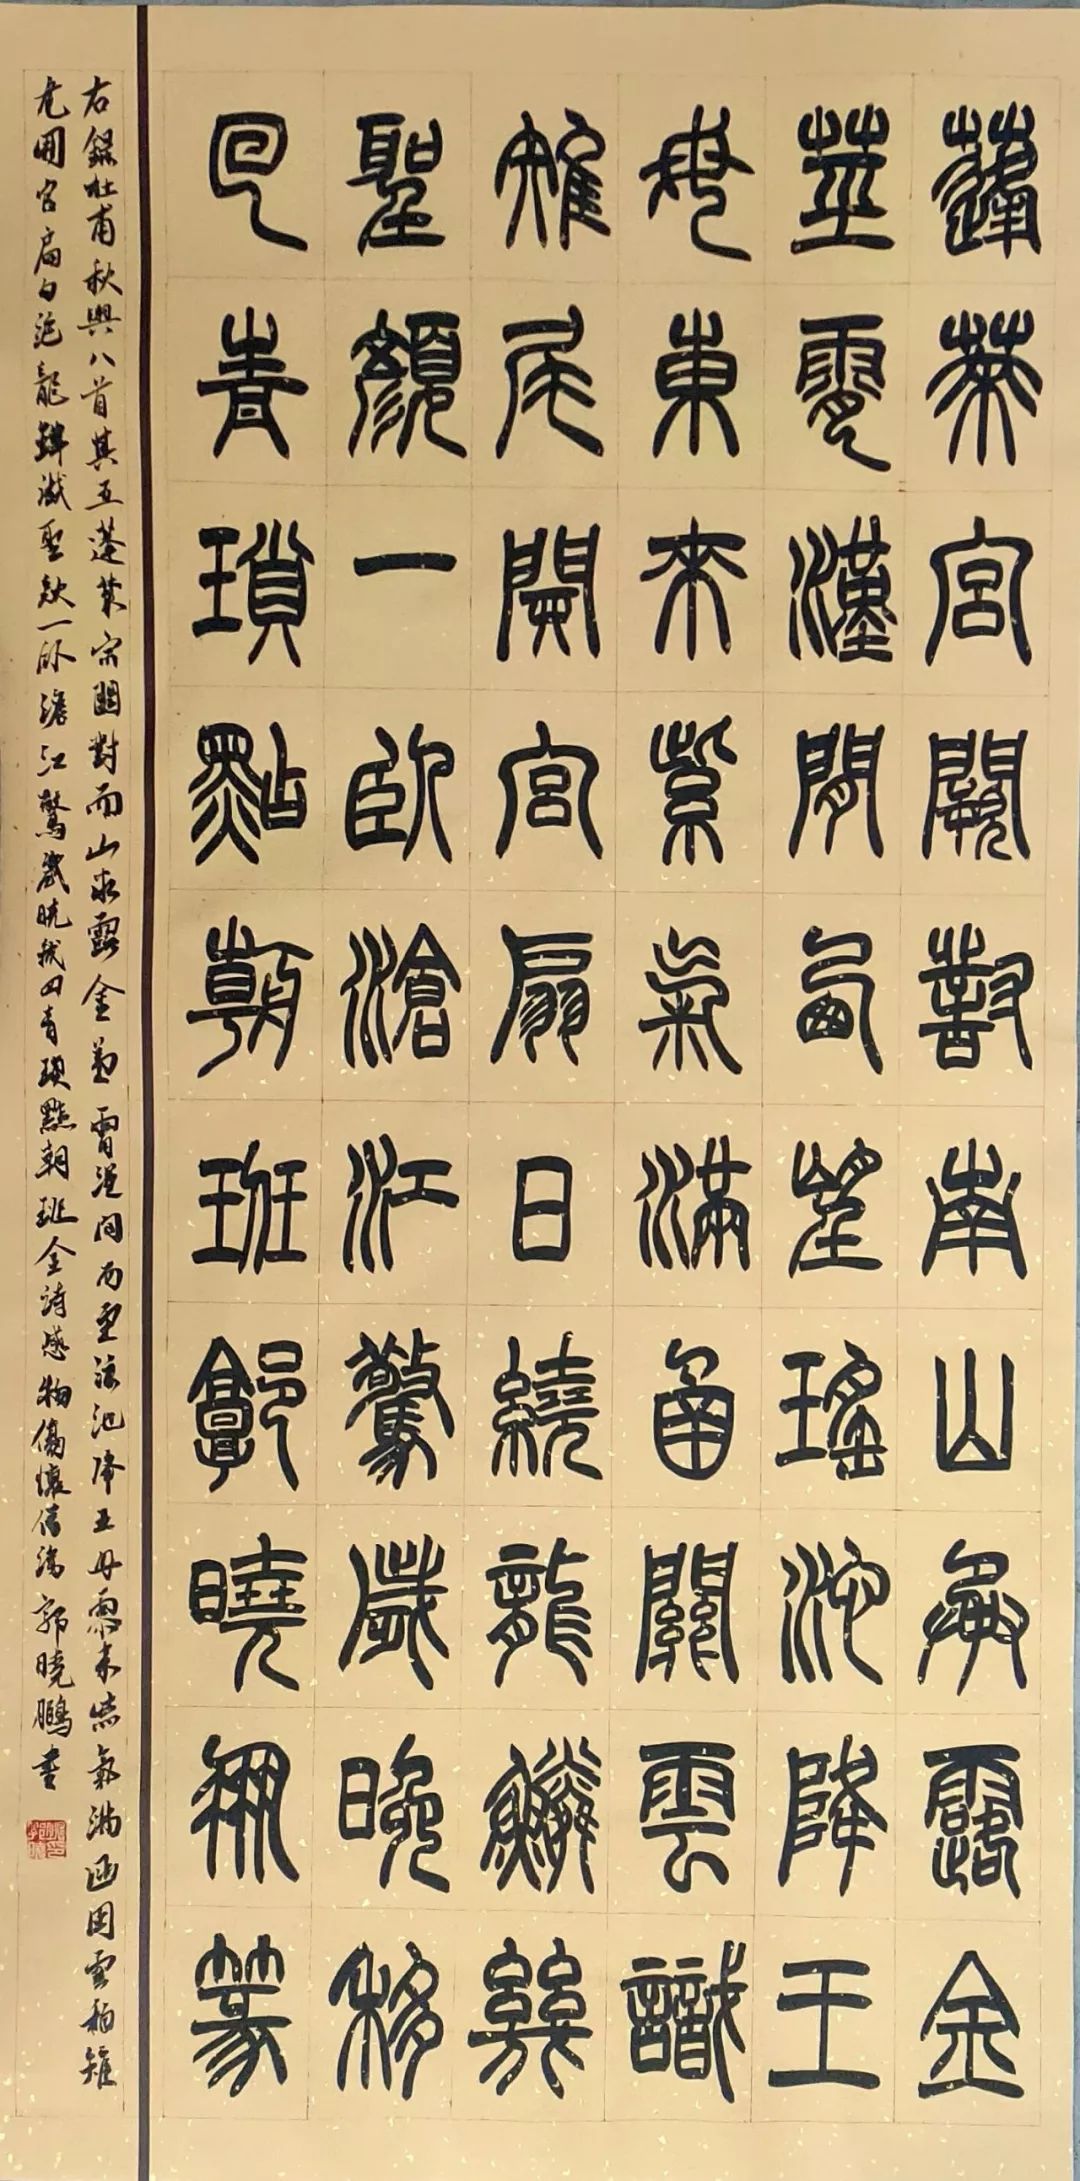 蓬萊宮闕對南山承露金
莖霄漢間西望瑤池降王
母東來紫氣滿函關雲識
雉尾開宮扇日繞龍鱗幾
聖顏一臥滄江驚歲晚移
回青瑣點朝班郭曉鵬篆
右錄杜甫秋興八首其五蓬萊宮闕對南山承露金莖霄漢間西望瑤池降王母東來紫氣滿函關雲移雉
尾開宮扇日繞龍鱗識聖顏一臥滄江驚歲晚幾回青瑣點朝班全詩感物傷懷郭曉鵬書